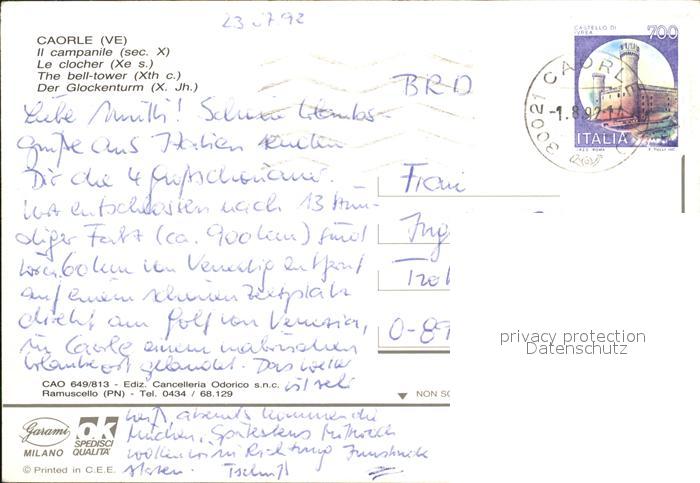 23.7.92
CAORLE (VE)
Il campanile (sec. X)
Le clocher (Xe s.)
The bell-tower (Xth c.)
Der Glockenturm (X. Jh.)
CASTELLO DI
IVREA
700
ITALIA
30021 CAORLE
-1.8.92
BRD
Liebe Mutti! Schöne Urlaubs-
grüße aus Italien senden
Dir die 4
wir entschlossen nach 13 stün-
diger Fahrt (ca. 900 km) sind
wir 60 km von Venedig entfernt
auf einem schönen Zeltplatz
direkt am Golf von Venezia,
in Caorle einem malerischen
Urlaubsort gelandet. Das Wetter
ist sehr
heiß, abends kommen die
Mücken, Spätestens Mittwoch
wollen wir in Richtung Innsbruck
Tschüß
Frau
Ing
D-89
privacy protection
Datenschutz
CAO 649/813 - Ediz. Cancelleria Odorico s.n.c.
Ramuscello (PN) - Tel. 0434 / 68.129
NON SC
Garami
MILANO
ok
SPEDISCI
QUALITÀ
© Printed in C.E.E.